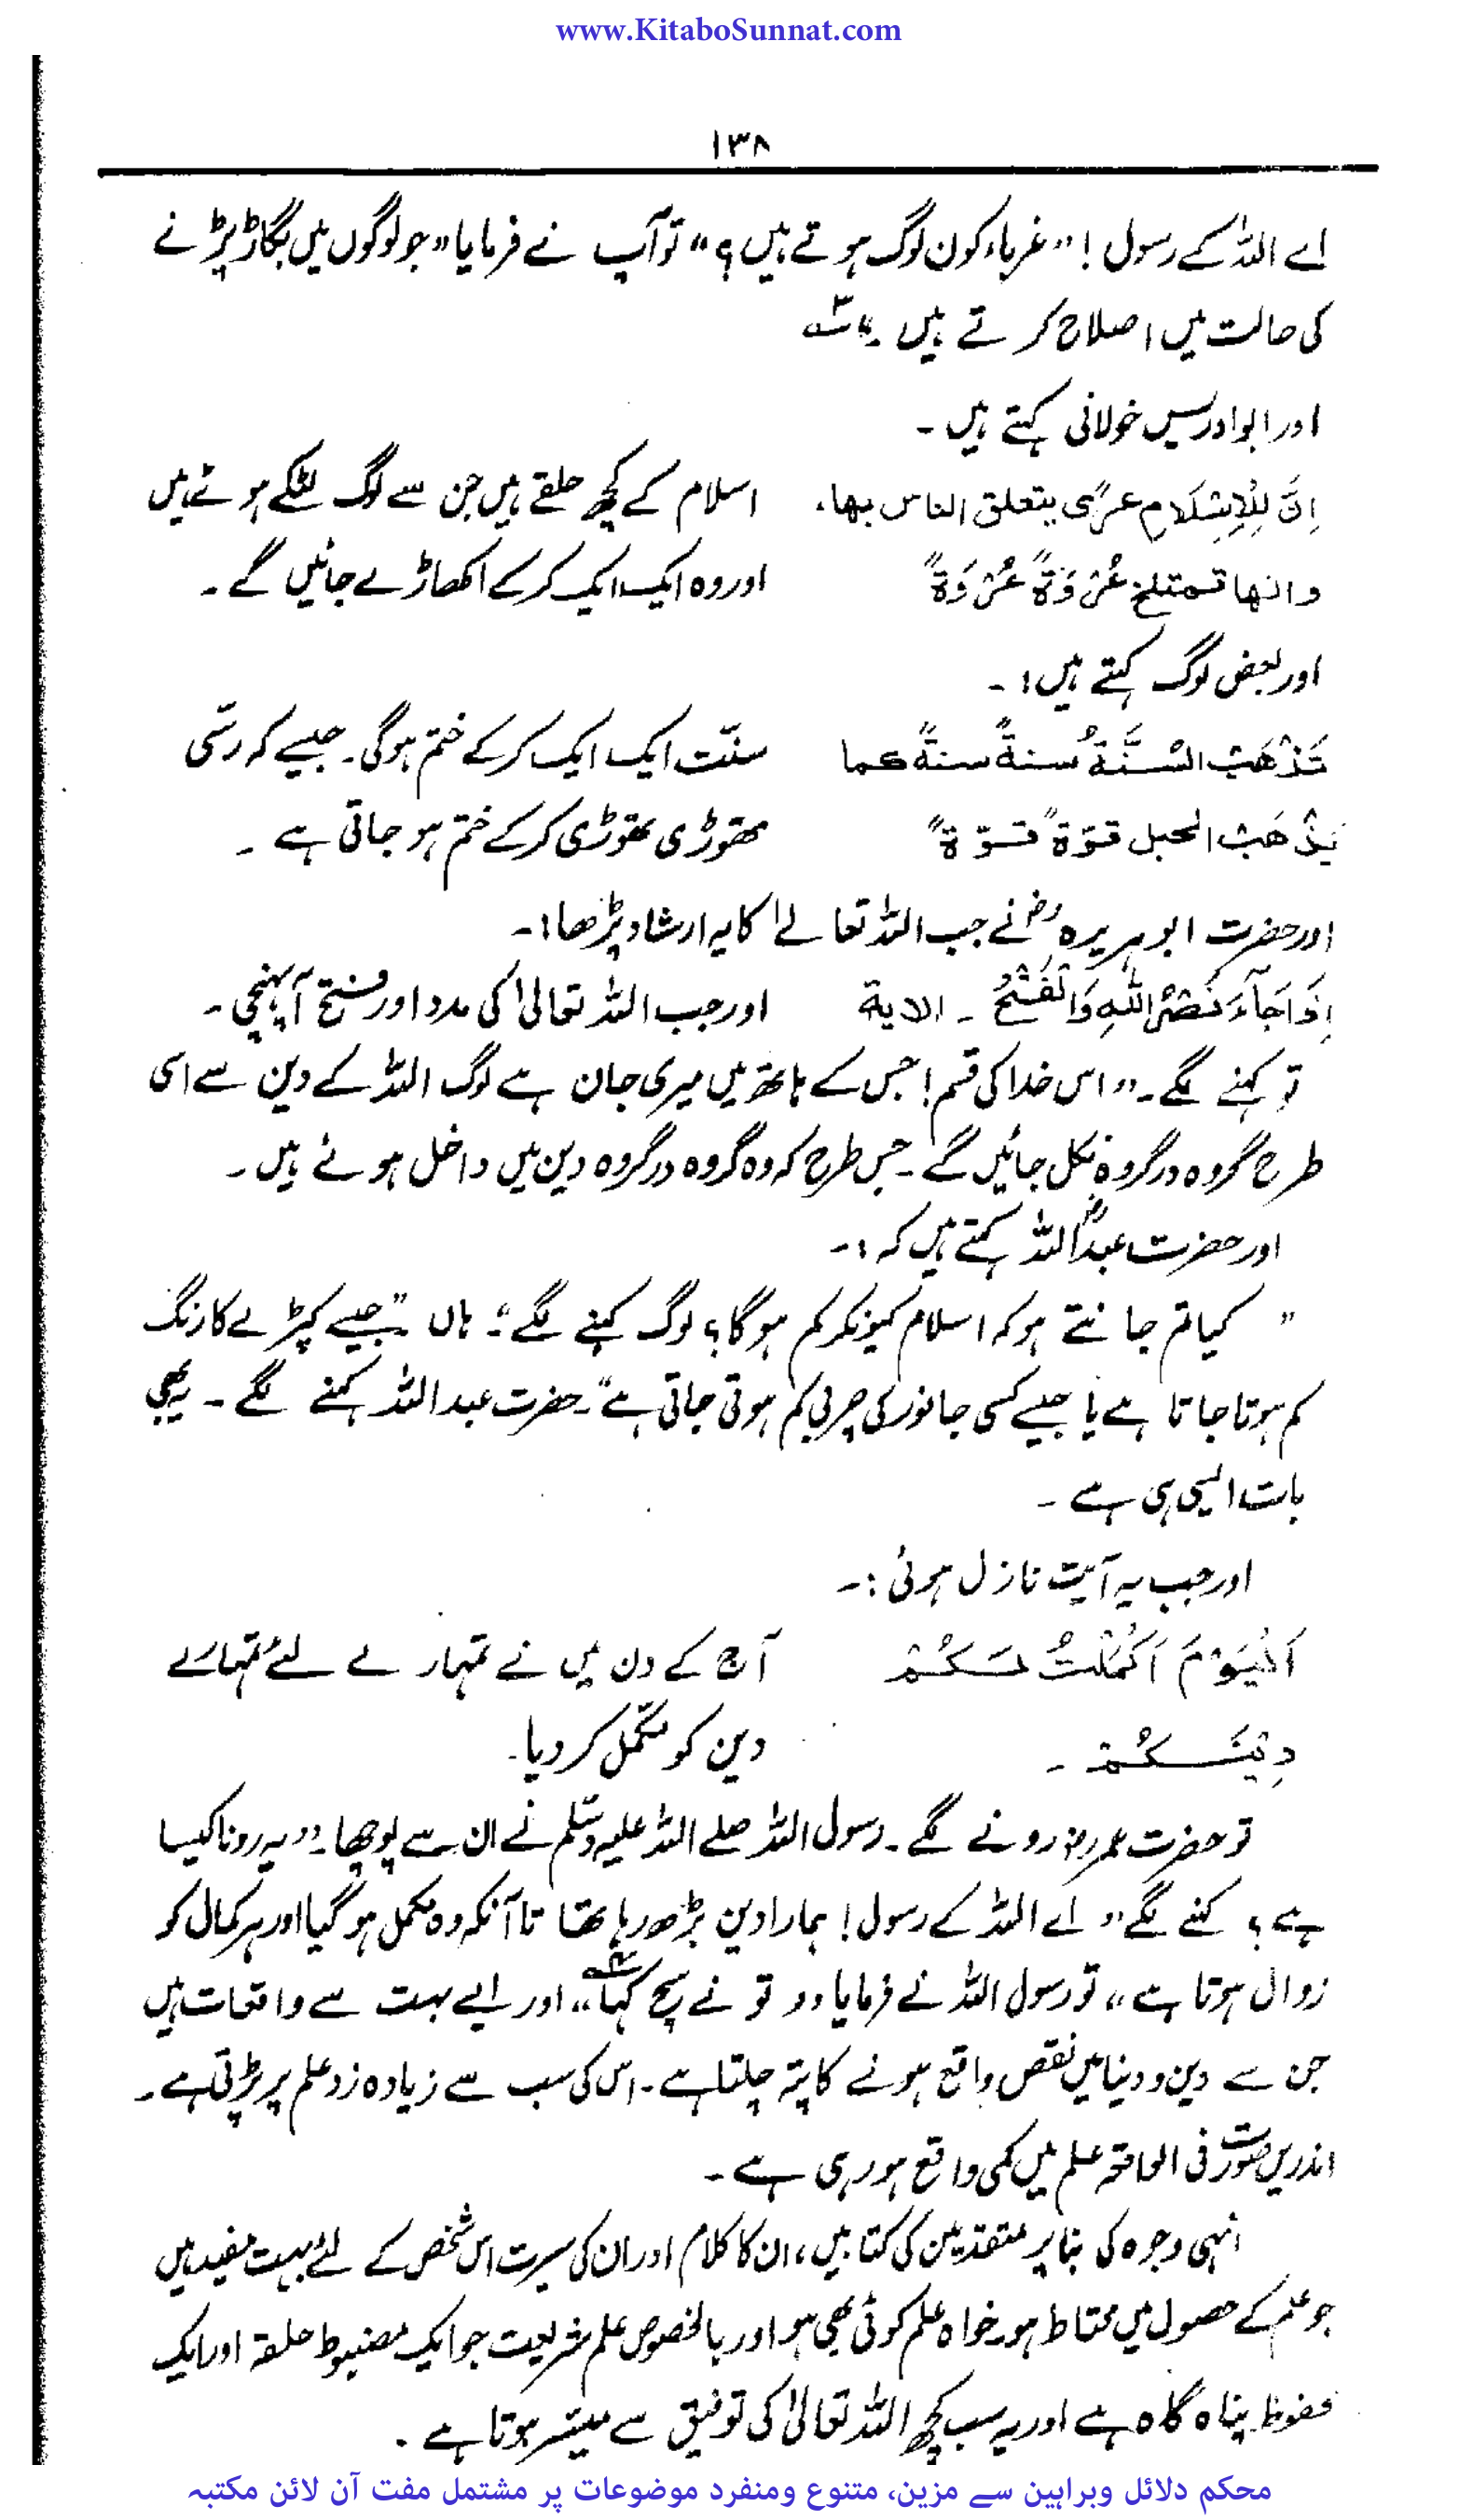 www.KitaboSunnat.com
۱۳۸
اے اللہ کے رسول! ”غرباء کون لوگ ہوتے ہیں؟“ تو آپ نے فرمایا ”جو لوگوں میں بگاڑ پڑنے
کی حالت میں اصلاح کرتے ہیں۔“ ؂۳
اور ابو ادریس خولانی کہتے ہیں۔
اِنَّ لِلْاِسْلَامِ عرًی یتعلق الناس بھا، اسلام کے کچھ حلقے ہیں جن سے لوگ لٹکے ہوئے ہیں
وانھا تمتلخ عُرْوَةً عُرْوَةً اور وہ ایک ایک کرکے اکھاڑے جائیں گے۔
اور بعض لوگ کہتے ہیں:۔
تَذْهَبُ السُّنَّةُ سنةً سنةً کما سنّت ایک ایک کرکے ختم ہوگی۔ جیسے کہ رسّی
یَذْهَبُ الحبل قوّة قوّةً تھوڑی تھوڑی کرکے ختم ہو جاتی ہے۔
اور حضرت ابو ہریرہ رضؓ نے جب اللہ تعالےٰ کا یہ ارشاد پڑھا:۔
اِذَا جَآءَ نَصْرُ اللهِ وَالْفَتْحُ ۔ الایة اور جب اللہ تعالیٰ کی مدد اور فتح آپہنچی۔
تو کہنے لگے۔ ”اس خدا کی قسم! جس کے ہاتھ میں میری جان ہے لوگ اللہ کے دین سے اسی
طرح گروہ در گروہ نکل جائیں گے۔ جس طرح کہ وہ گروہ در گروہ دین میں داخل ہوئے ہیں۔
اور حضرت عبداللہؓ کہتے ہیں کہ:۔
”کیا تم جانتے ہو کہ اسلام کیونکر کم ہوگا؟ لوگ کہنے لگے؛ ہاں ”جیسے کپڑے کا رنگ
کم ہوتا جاتا ہے یا جیسے کسی جانور کی چربی کم ہوتی جاتی ہے“۔ حضرت عبداللہ کہنے لگے۔ یہ بھی
بات ایسی ہی ہے۔
اور جب یہ آیت نازل ہوئی:۔
اَلْیَوْمَ اَکْمَلْتُ لَکُمْ آج کے دن میں نے تمہارے لئے تمہارے
دِیْنَکُمْ ۔ دین کو مکمّل کر دیا۔
تو حضرت عمر رضؓ رونے لگے۔ رسول اللہ صلے اللہ علیہ وسلّم نے ان سے پوچھا۔ ”یہ رونا کیسا
ہے؟ کہنے لگے ”اے اللہ کے رسول! ہمارا دین بڑھ رہا تھا تا آنکہ وہ مکمل ہو گیا اور ہر کمال کو
زوال ہوتا ہے“ تو رسول اللہ نے فرمایا ”تو نے سچ کہا“؂۴ اور ایسے بہت سے واقعات ہیں
جن سے دین و دنیا میں نقص واقع ہونے کا پتہ چلتا ہے۔ اس کی سب سے زیادہ زد علم پر پڑتی ہے۔
اندریں صورت فی الواقعہ علم میں کمی واقع ہو رہی ہے۔
انہی وجوہ کی بنا پر متقدمین کی کتابیں، ان کا کلام اور ان کی سیرت اس شخص کے لئے بہت مفید ہیں
جو علم کے حصول میں محتاط ہو۔ خواہ علم کوئی بھی ہو اور بالخصوص علم شریعت جو ایک مضبوط حلقہ اور ایک
محفوظ پناہ گاہ ہے اور یہ سب کچھ اللہ تعالیٰ کی توفیق سے میسّر ہوتا ہے۔
محکم دلائل وبراہین سے مزین، متنوع ومنفرد موضوعات پر مشتمل مفت آن لائن مکتبہ